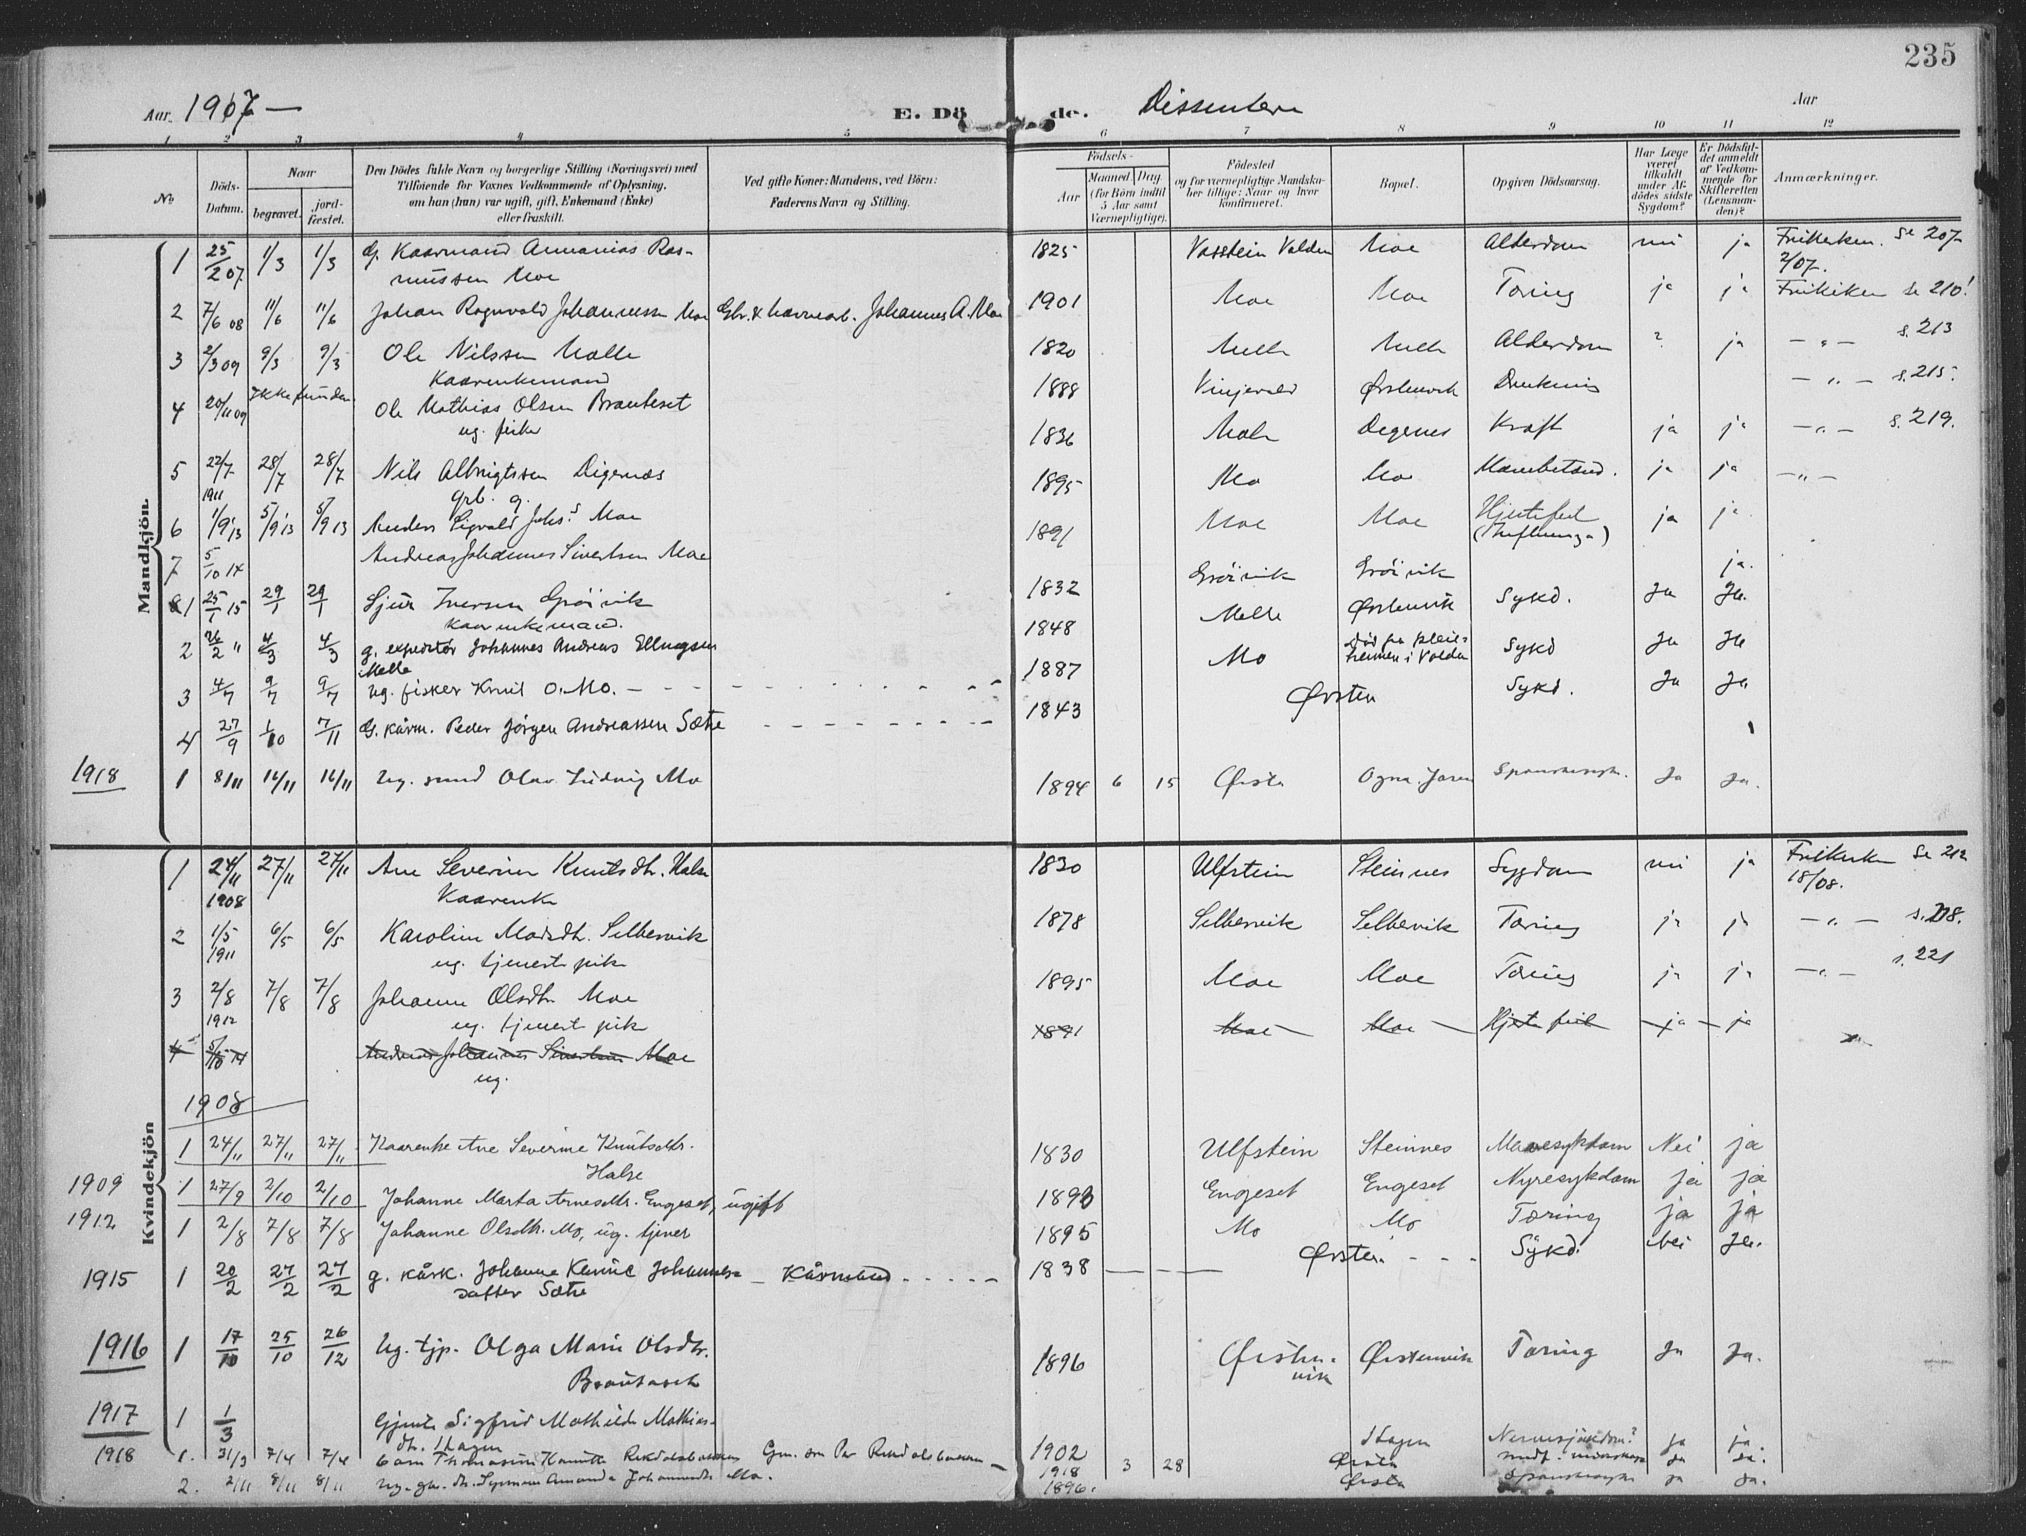 235
Aar. 1907 —
E. Döde.
Dissentere
Aar
1 2 3 4 5 6 7 8 9 10 11 12
No
Döds-Datum.
Naar
begravet.
jord-fæstet.
Den Dödes fulde Navn og borgerlige Stilling (Næringsvei) med
Tilföiende for Voxnes Vedkommende af Oplysning,
om han (hun) var ugift, gift, Enkemand (Enke)
eller fraskilt.
Ved gifte Koner: Mandens, ved Börn:
Faderens Navn og Stilling.
Födsels-
Aar
Maaned. Dag.
(for Börn indtil
5 Aar samt
Værnepligtige).
Födested
og for værnepligtige Mandska-
ber tillige: Naar og hvor
konfirmeret.
Bopæl.
Opgiven Dödsaarsag.
Har Læge
været
tilkaldt
under Af-
dödes sidste
Sygdom?
Er Dödsfal-
det anmeldt
af Vedkom-
mende for
Skifteretten
(Lensman-
den)?
Anmærkninger.
Mandkjön.
1 25/2 07 1/3 1/3 G. Kaarmand Annanias Ras- 1825 Vasstein Volden Moe Alderdom nei ja Frikirken. Se 207
mussen Moe 2/07.
2 7/6 08 11/6 11/6 Johan Ragnvald Johannessen Moe Gbr. & havnearb. Johannes A. Moe 1901 Moe Moe Tæring ja ja Frikirken se 210!
3 2/3 09 9/3 9/3 Ole Nilssen Melle 1820 Melle Melle Alderdom ? ja — „ — s. 213
Kaarenkemand
4 20/11 09 Ikke funden Ole Mathias Olsen Brauteset 1888 Vinjevold Ørstenvik Drukning — „ — s. 215.
ug. fisker
5 22/7 1911 28/7 28/7 Nils Albrigtsen Digernæs 1836 Digernes Kræft ja ja — „ — s. 219.
grb. g.
6 1/9 13 5/9 13 5/9 13 Anders Sigvald Johs.s Moe 1895 Mo Moe ja ja — „ —
7 5/10 14 Andreas Johannes Sivertsen Moe 1891 Moe Moe Hjertefeil ja ja
(Influenza)
1 25/1 15 29/1 29/1 Sjur Iversen Grøivik 1832 Grøivik Grøivik Sykd. Ja ja.
kaarenkemand.
2 26/2 " 4/3 4/3 g. expeditør Johannes Andreas Ellingsen 1848 Melle Ørstenvik Sykd Ja Ja
Melle
3 4/7 9/7 9/7 ug. fisker Knut O. Mo. 1887 Mo Død på pleie-
heimen i Volden Sykd. Ja Ja
4 27/9 1/10 7/11 G. kårm. Peder Jørgen Andreassen Sætre 1843 Ørsten
1918 1 8/11 14/11 14/11 Ug. Olav Ludvig Mo 1894 6 15 Ørsta Ogna. Jæren Spanskesyk. Ja Ja.
Kvindekjön
1 24/11 1908 27/11 27/11 Ane Severine Knutsdtr. Halse 1830 Ulfstein Steinnes Sygdom nei ja Frikirken Se 212
Kaarenke 18/08.
2 1/5 1911 6/5 6/5 Karoline Madsdt. Selbervik 1878 Selbervik Selbervik Tæring ja ja — „ — s. 218.
ug. tjenestpike
3 2/8 1912 7/8 7/8 Johanne Olsdtr Moe 1895 Moe Moe Tæring ja ja — „ — s. 221
ug. tjenest pike
4 5/10 14 Andreas Johannes Sivertsen Moe 1891 Moe — Moe — Hjertefeil — ja — ja
ug.
1908
1 24/11 27/11 27/11 Kaarenke Ane Severine Knutsdtr. 1830 Ulfstein Steinnes Mavesykdom Nei ja
Halse
1909 1 27/9 2/10 2/10 Johanne Marta Arnesdtr. Engeset, ugift 1893 Engeset Engeset Nyresykdom ja ja
1912 1 2/8 7/8 7/8 Johanne Olsdtr. Mo, ug. tjener 1895 Mo Mo Tæring ja ja
1915 1 20/2 27/2 27/2 g. kårk. Johanne Johannes- — Kårmand 1838 Ørsten. Sykd. Nei Ja.
datter Sætre
1916 1 17/10 25/10 26/12 Ug. tjp. Olga Marie Olsdtr. 1896 Ørsten- Ørstenvik Tæring Ja Ja.
vik
Brautaset
1917 1 1/3 Gjente Sigfrid Mathilde Mathias- 1902 Hagen Nervesjukdom? ja ja
dtr. Hagen
1918 1. 31/3 7/4 7/4 barn 1918 3 28 Ørsta medf. ja ja.
2. 2/11 8/11 8/11 Ug. Amanda Johannesdtr. Mo. 1896. Ørsta Spanskesyke ja ja.